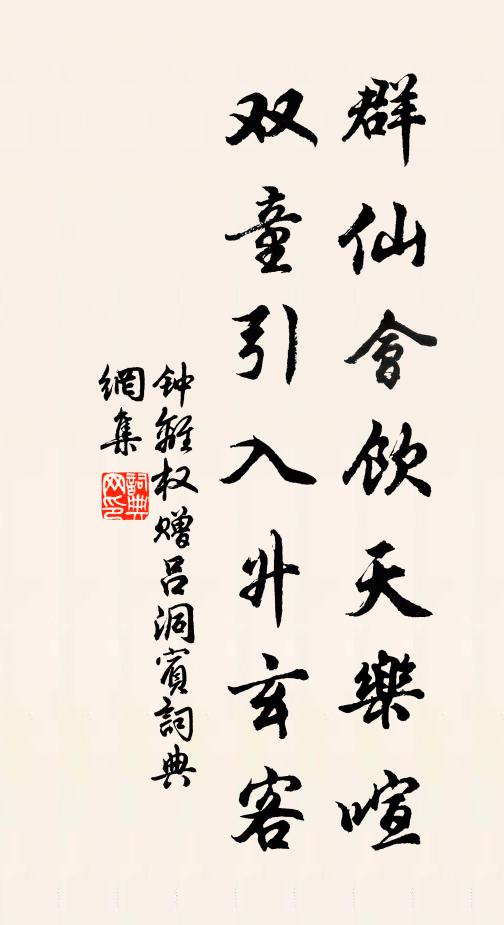 群仙會飲天樂喧
双童引入升玄客
钟離权赠吕洞賓詞典
網集
詞典
网印